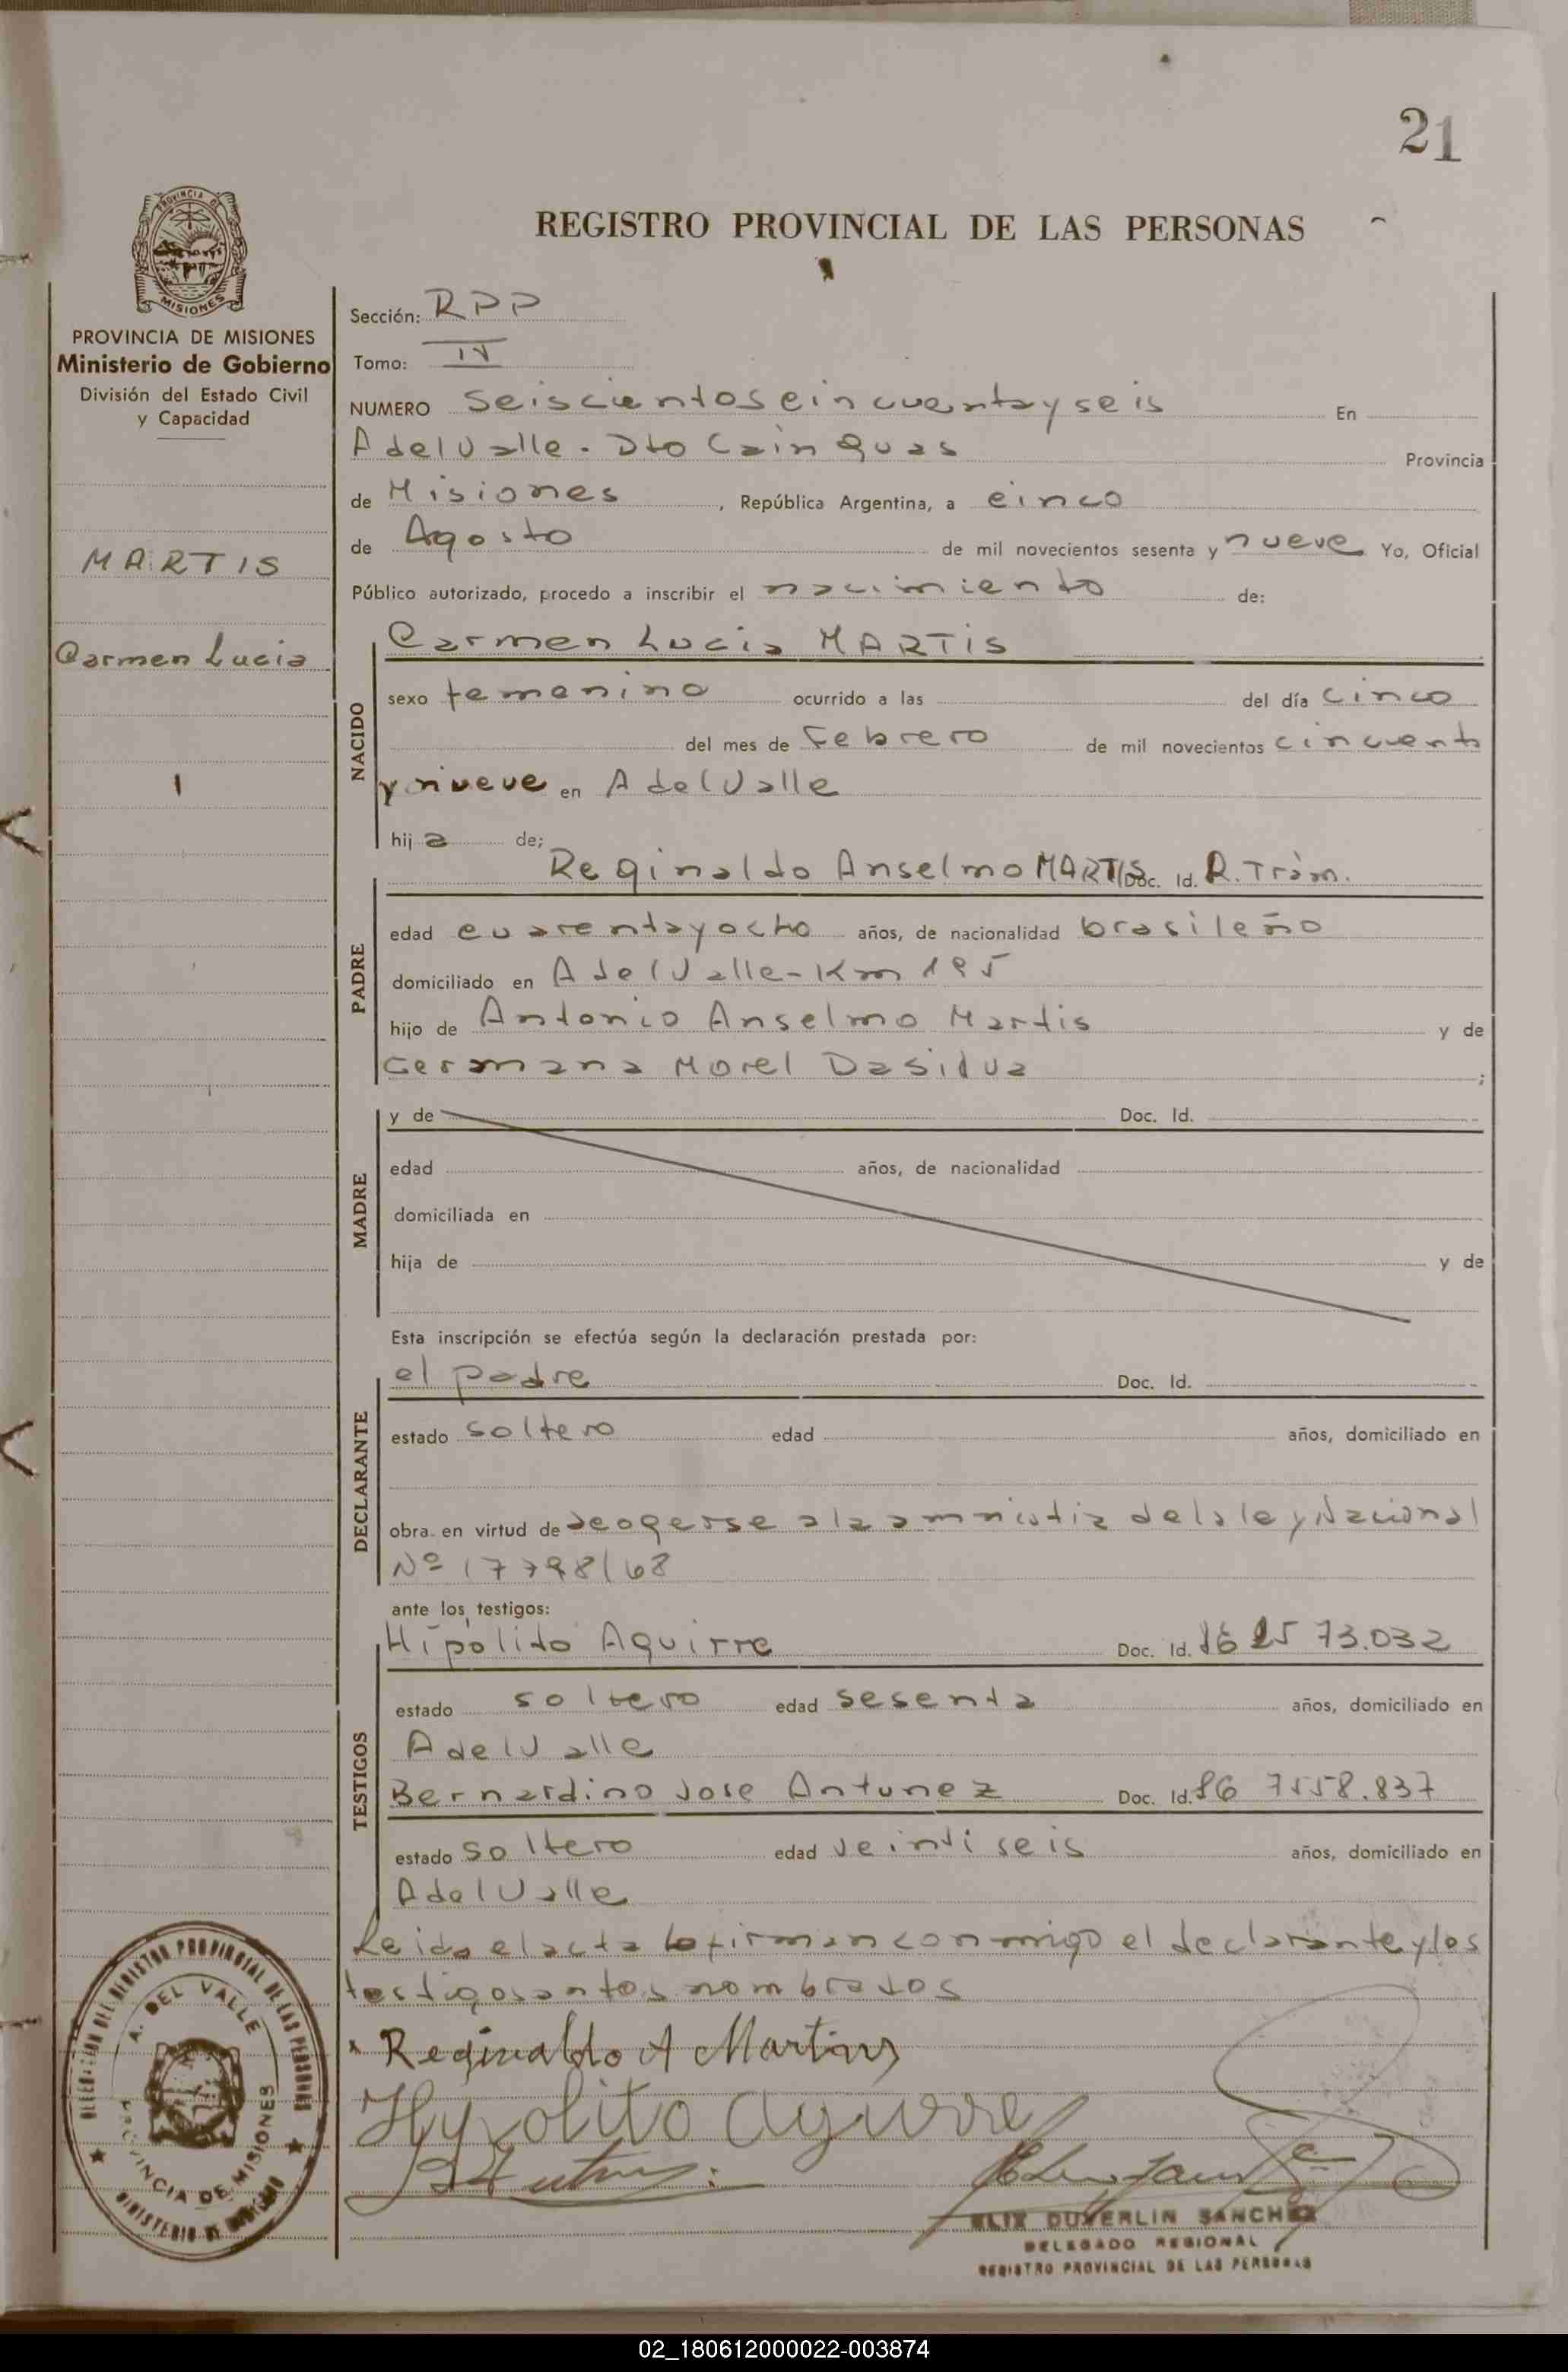 21
REGISTRO PROVINCIAL DE LAS PERSONAS
PROVINCIA DE
MISIONES
PROVINCIA DE MISIONES
Ministerio de Gobierno
División del Estado Civil
y Capacidad
MARTIS
Carmen Lucia
1
Sección: RPP
Tomo: IV
NUMERO Seiscientos cincuenta y seis En
A del Valle - Dto Cainguas Provincia
de Misiones, República Argentina, a cinco
de Agosto de mil novecientos sesenta y nueve Yo, Oficial
Público autorizado, procedo a inscribir el nacimiento de:
NACIDO
Carmen Lucia MARTIS
sexo femenino ocurrido a las del día cinco
del mes de Febrero de mil novecientos cincuenta
y nueve en A del Valle
hij a de;
PADRE
Reginaldo Anselmo MARTIS Doc. Id. R. Trám.
edad cuarenta y ocho años, de nacionalidad brasileño
domiciliado en A del Valle - Km 195
hijo de Antonio Anselmo Martis y de
Germana Morel Dasilva ;
MADRE
y de Doc. Id.
edad años, de nacionalidad
domiciliada en
hija de y de
Esta inscripción se efectúa según la declaración prestada por:
DECLARANTE
el padre Doc. Id.
estado soltero edad años, domiciliado en
obra en virtud de acogerse a la amnistia de la ley Nacional
Nº 17798/68
ante los testigos:
TESTIGOS
Hípólito Aguirre Doc. Id. 73.032
estado soltero edad sesenta años, domiciliado en
A del Valle
Bernardino Jose Antunez Doc. Id. 7558.837
estado soltero edad veinti seis años, domiciliado en
A del Valle
Leida el acta lo firman conmigo el declarante y los
testigos antes nombrados
Reginaldo A Martins
Hypolito Aguirre
DELEGACION DEL REGISTRO PROVINCIAL DE LAS PERSONAS
A. DEL VALLE
PROVINCIA DE MISIONES
MINISTERIO DE GOBIERNO
ELIX DUVERLIN SANCHEZ
DELEGADO REGIONAL
REGISTRO PROVINCIAL DE LAS PERSONAS
02_180612000022-003874